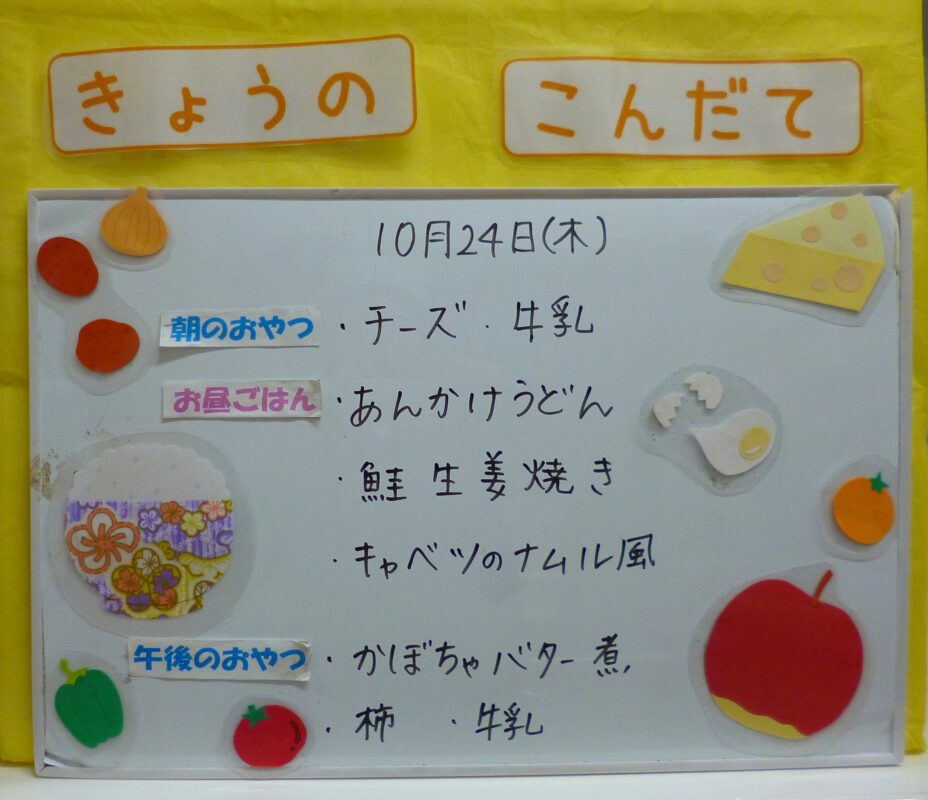 きょうの こんだて
10月24日(木)
朝のおやつ ・チーズ ・牛乳
お昼ごはん ・あんかけうどん
・鮭生姜焼き
・キャベツのナムル風
午後のおやつ ・かぼちゃバター煮
・柿 ・牛乳